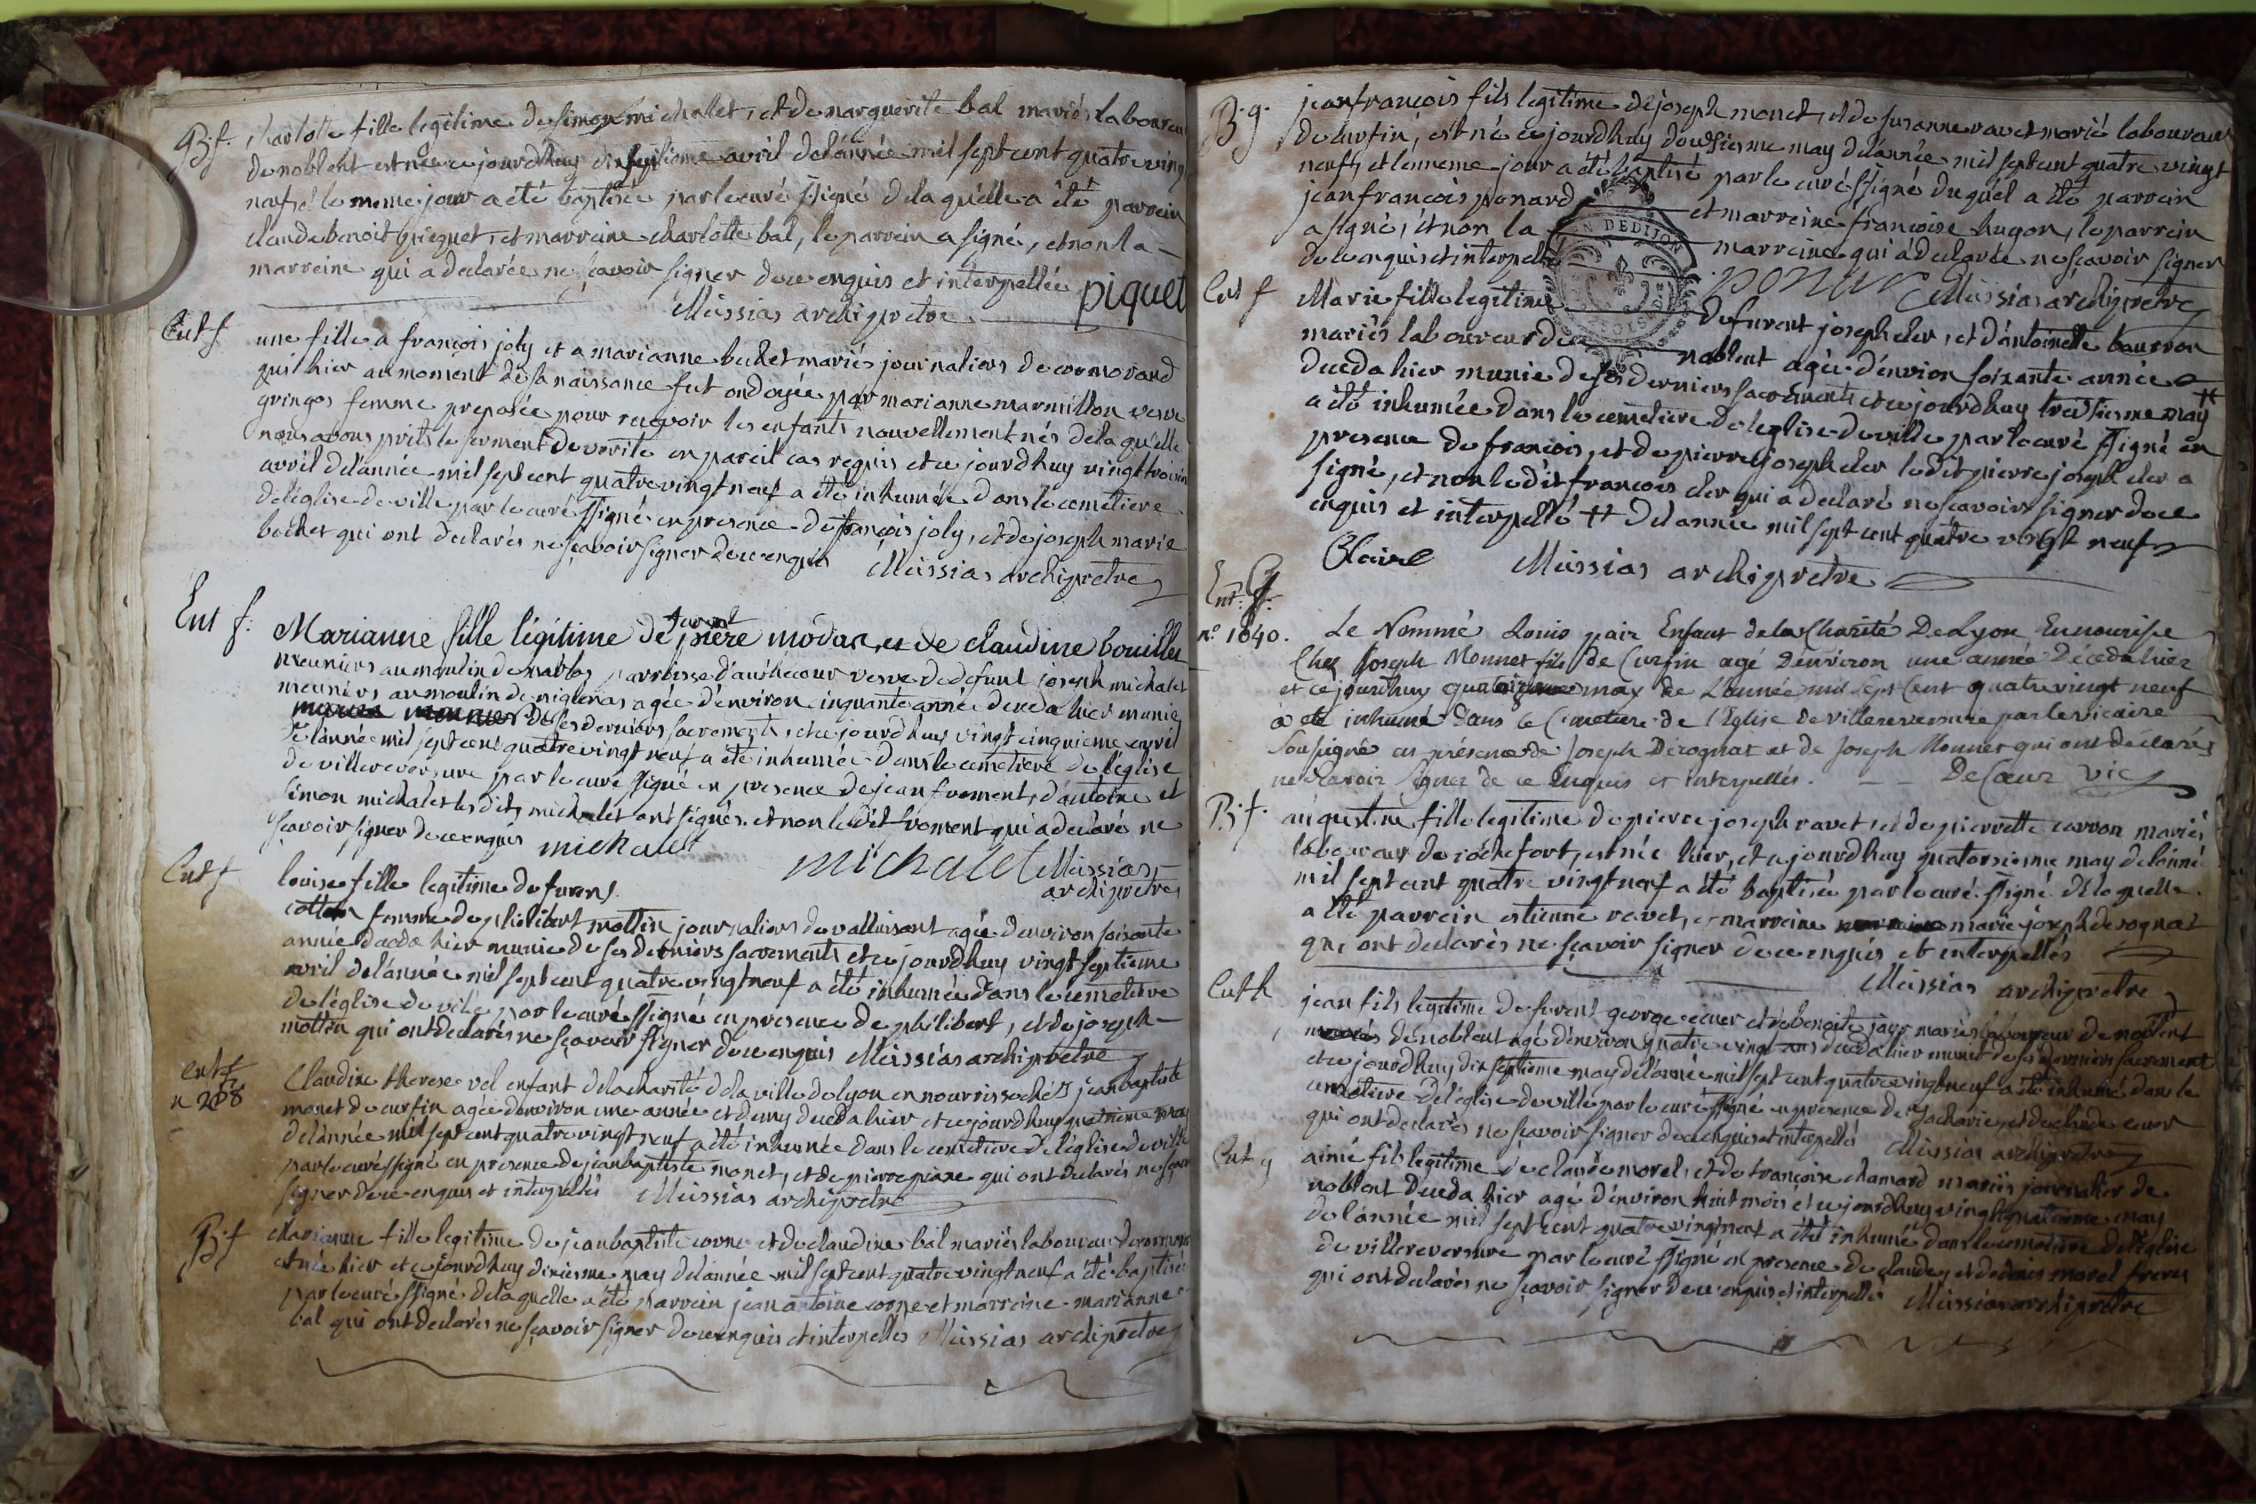 B. f.
charlotte fille legitime de simon michallet, et de marguerite bal mariés laboureurs
de noblent est née ce jourdhuy dixseptieme avril de lánnée mil sept cent quatre vingt
neuf et le meme jour a été baptisée par le curé ssigné de la quélle a été parrein
claude benoit piequet, et marreine charlotte bal, le parrein a signé, et non la
marreine qui a declarée ne sçavoir signer de ce enquis et interpellée piquet
Missias archiprètre
Ent f
une fille a françois joly et a marianne buchet mariés journaliers de cormorand
qui hier au moment de sa naissance fut ondoyée par marianne marmillon veuve
gringos femme preposée pour recevoir les enfants nouvellement nés de la quélle
nous avons prits le serment de verité en pareil cas requis et ce jourdhuy vingt troisi
avril de lánnée mil sept cent quatre vingt neuf a été inhumée dans le cemetiere
de léglise de ville par le curé ssigné en presence de françois joly, et de joseph marie
bochet qui ont declarés ne sçavoir signer de ce enquis Missias archiprètre
Ent f.
furent
Marianne fille légitime de piere modas, et de claudine bouillet
meuniers au moulin de parroisse veuve de defunt joseph michalet
meuniers au moulin de agée d'environ cinquante année deceda hier munie
de ses derniers sacrements, et ce jourdhuy vingt cinquieme avril
de lánnée mil sept cent quatre vingt neuf a été inhumée dans le cemetiere de léglise
de villereversure par le curé ssigné en presence de jean froment, d'antoine et
simon michalet lesdits michalet ont signés, et non ledit froment qui a declaré ne
sçavoir signer de ce enquis michalet michalet Missias
archipretre
Ent f
louise fille legitime de furent
femme de philibert mottin journaliers de valluisant agée denviron soixante
année deceda hier munie de ses derniers sacrements et ce jourdhuy vingt septieme
avril de lánnée mil sept cent quatre vingt neuf a été inhumée dans le cemetiere
de léglise de ville par le curé ssigné en presence de philibert, et de joseph
mottin qui ont declarés ne sçavoir signer de ce enquis Missias archiprètre
ent f
n 208
Claudine therese vel enfant de la charité de la ville de lyon en nourrisse chés jean baptiste
monet de curfin agée denviron une année et demy deceda hier et ce jourdhuy quatrieme may
de lánnée mil sept cent quatre vingt neuf a été inhumée dans le cemetiere de léglise de ville
par le curé ssigné en presence de jean baptiste monet, et de pierre qui ont declarés ne sçavoir
signer de ce enquis et interpellés Missias archiprètre
B. f
Marianne fille legitime de jean baptiste corne et de claudine bal mariés laboureurs
est née hier et ce jourdhuy dixiesme may de lánnée mil sept cent quatre vingt neuf a été baptisée
par le curé ssigné de la quelle a été parrein jean antoine corne et marreine marianne
bal qui ont declarés ne sçavoir signer de ce enquis et interpellés Missias archiprètre
B. g.
jean françois fils legitime de joseph monet, et de susanne ravet mariés laboureurs
de curfin, est né ce jourdhuy dousiesme may de lánnée mil sept cent quatre vingt
neuf, et le meme jour a été baptisé par le curé ssigné du quél a été parrein
jean françois ponard et marreine françoise hugon, le parrein
a signé, et non la marreine qui a declarée ne sçavoir signer
de ce enquis et interpellée ponar Missias archiprètre
EN DE DIJON
Ent f
Marie fille legitime de furent joseph cler, et d'antoinette bourron
mariés laboureurs de noblent agée d'environ soixante année
deceda hier munie de ses derniers sacrements et ce jourdhuy treisiesme may ++
a été inhumée dans le cemetiere de léglise de ville par le curé ssigné en
presence de francois, et de pierre joseph cler ledit pierre joseph cler a
signé, et non ledit francois cler qui a declaré ne sçavoir signer de ce
enquis et interpellé ++ de lannée mil sept cent quatre vingt neuf
Claire Missias archiprètre
Ent. G.
n° 1840.
Le Nommé Louis pair Enfant de la Charité De Lyon En nourisse
Chez Joseph Monnet fils de Curfin agé Denviron une année Décéda hier
et ce jourdhuy quatorzieme may de Lannée mil sept Cent quatre vingt neuf
a eté inhumé dans le Cimetiere de l'Eglise de villereversure par le vicaire
Soussigné en présence de Joseph Dérognat et de Joseph Monnet qui ont déclarés
ne Savoir Signer de ce Enquis et interpellés. De Coeur Vic
B. f.
augustine fille legitime de pierre joseph ravet, et de pierrette carron mariés
laboureurs de rochefort, est née hier, et ce jourdhuy quatorsiesme may de lánnée
mil sept cent quatre vingt neuf a été baptisée par le curé ssigné de la quelle
a été parrein estienne ravet, et marreine marie joseph derognat
qui ont declarés ne sçavoir signer de ce enquis et interpellés
Missias archiprètre
Ent h
jean fils legitime de furent george ecuer et de benoite jayr mariés laboureur de noblent
de noblent agé d'environ quatre vingt ans deceda hier munit de ses derniers sacrement
et ce jourdhuy dix septieme may de lánnée mil sept cent quatre vingt neuf a été inhumé dans le
cemetiere de léglise de ville par le curé ssigné en presence de Zacharie, et de claude ecuer
qui ont declarés ne sçavoir signer de ce enquis et interpellés Missias archiprètre
Ent g
aimé fils legitime de claude morel, et de françoise chamard mariés journalier de
noblent deceda hier agé d'environ huit mois et ce jourdhuy vingt quatrieme may
de lánnée mil sept cent quatre vingt neuf a été inhumé dans le cemetiere de léglise
de villereversure par le curé ssigné en presence de claude, et de denis morel freres
qui ont declarés ne sçavoir signer de ce enquis et interpellés Missias archiprètre